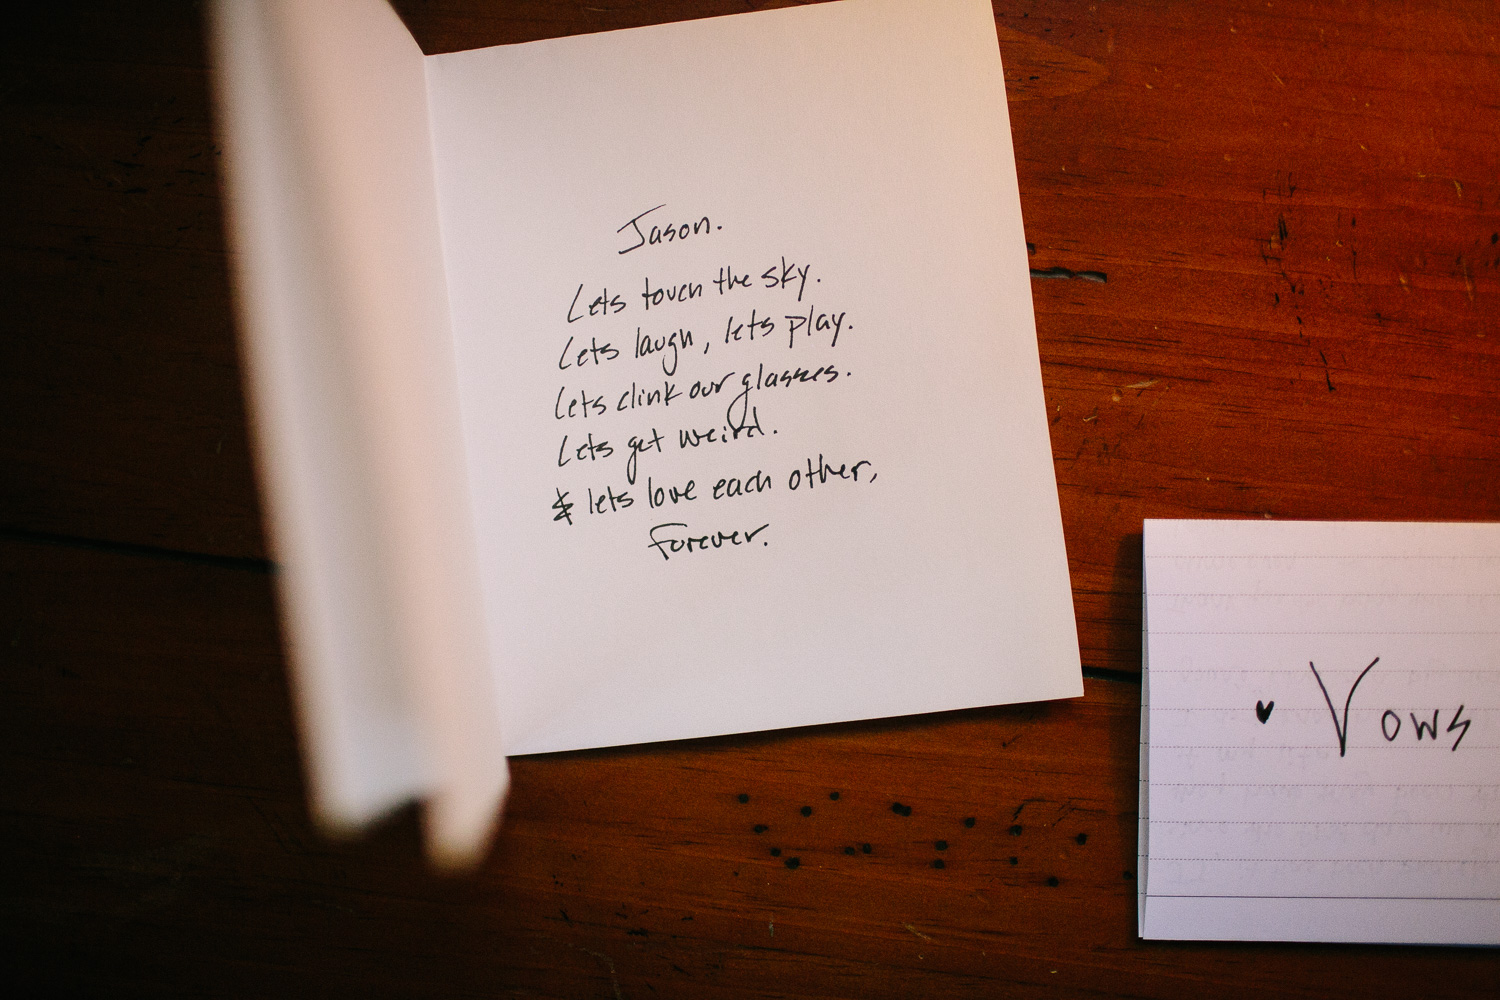 Jason.
Lets touch the sky.
Lets laugh, lets play.
Lets clink our glasses.
Lets get weird.
& lets love each other,
Forever.
♥ Vows